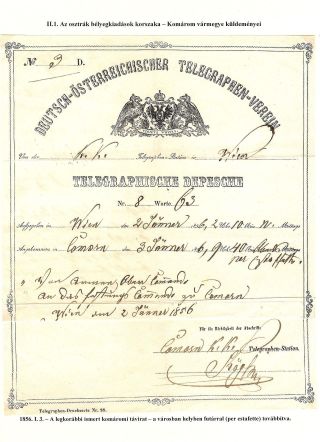 II.1. Az osztrák bélyegkiadások korszaka – Komárom vármegye küldeményei
№ 3 D.
DEUTSCH-ÖSTERREICHISCHER TELEGRAPHEN-VEREIN
Von der k.k. Telegraphen-Station in Wien
TELEGRAPHISCHE DEPESCHE
Nr. 8 Worte 63
Aufgegeben in Wien den 2 Jänner 1856, 2 Uhr 10 Min. N. Mittags
Angekommen in Comorn den 3 Jänner 1856, 9 Uhr 40 Min. Mittags
per Estaffette
Von Armee Ober Comando
an das Festungs Comando zu Comorn
Wien am 2 Jänner 1856
Für die Richtigkeit der Abschrift
Comorn k.k. Telegraphen-Station.
Telegraphen-Drucksorte Nr. 28.
1856. I. 3. – A legkorábbi ismert komáromi távirat – a városban helyben futárral (per estafette) továbbítva.